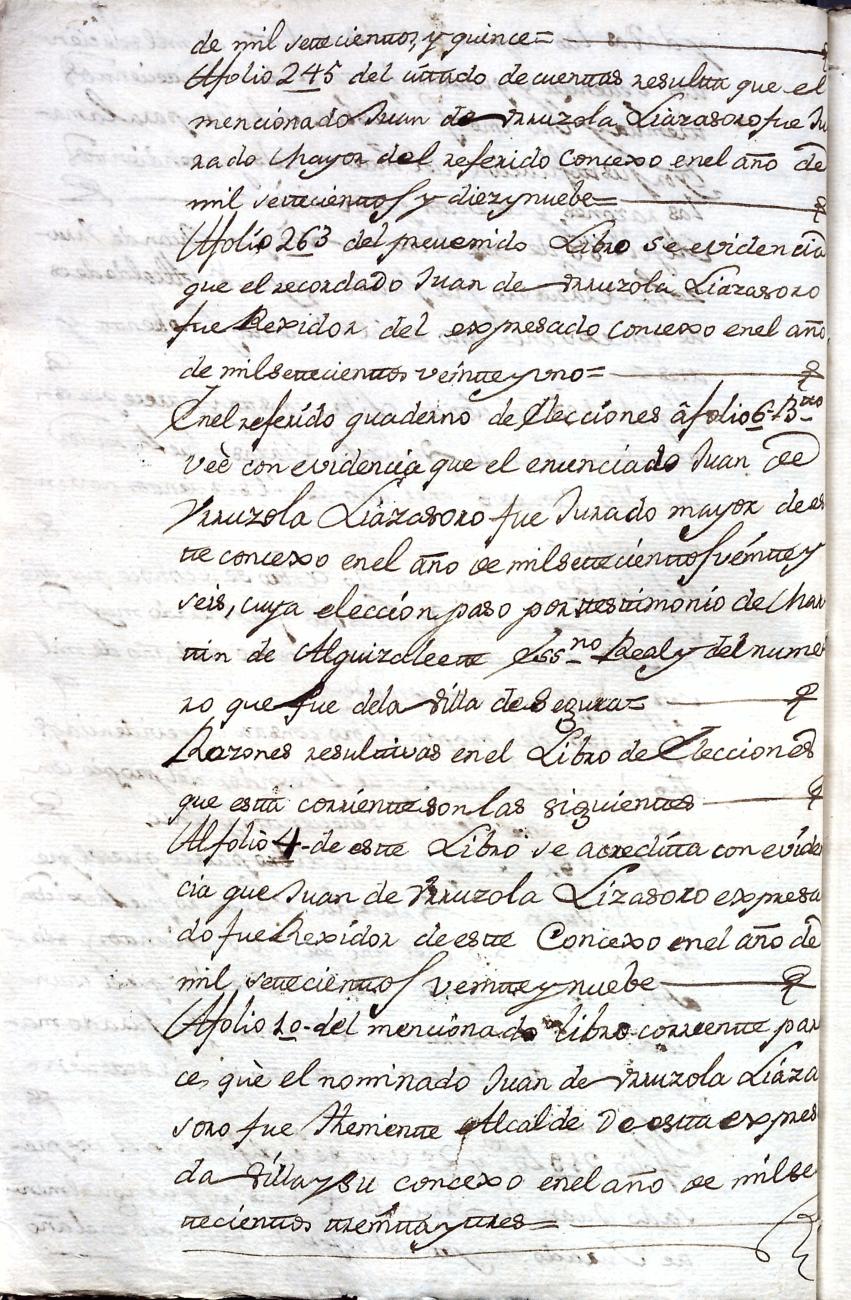 de mil settecienttos, y quince=
Afolio 245 del cittado de cuenttas resultta que el
mencionado Juan de Urruzola Liazasoro fue Ju
rado Mayor del referido Concexo en el año de
mil settecienttos y diez y nuebe=
Afolio 263 del preuenido Libro se evidencia
que el recordado Juan de Urruzola Liazasoro
fue Rexidor del expresado concexo en el año
de mil settecienttos veintte y uno=
En el referido quaderno de Elecciones â folio 6 B.tto
veè con evidencia que el enunciado Juan de
Urruzola Liazasoro fue Jurado mayor de es
tte concexo en el año de mil settecienttos veintte y
seis, cuya elección paso por testtimonio de Mar
ttin de Alguizaleette Ess.no Real y del nume
ro que fue de la Villa de Segura=
Razones resulttivas en el Libro de Elecciones
que estta corrientte son las siguienttes
Al folio 4 de estte Libro se acreditta con eviden
cia que Juan de Urruzola Lizasoro expresa
do fue Rexidor de estte Concexo en el año de
mil settecienttos veintte y nuebe
Afolio 10 del mencionado libro corrientte pare
ce, què el nominado Juan de Urruzola Liaza
soro fue Themientte Alcalde De estta expresa
da Villa y su concexo en el año de mil se
ttecienttos treintta y ttres=